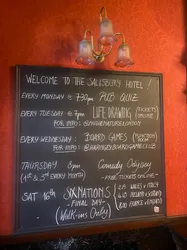 WELCOME TO THE SALISBURY HOTEL!
EVERY MONDAY @ 7:30pm PUB QUIZ
EVERY TUESDAY @ 7pm LIFE DRAWING (TICKETS ONLINE)
FOR INFO:
EVERY WEDNESDAY: BOARD GAMES
FOR INFO:
THURSDAY 8pm Comedy Odyssey
(1st & 3rd EVERY MONTH) -FREE TICKETS ONLINE-
SAT 16th SIX NATIONS WALES v ITALY
-FINAL DAY- IRELAND v
(Walk-ins Only) FRANCE v